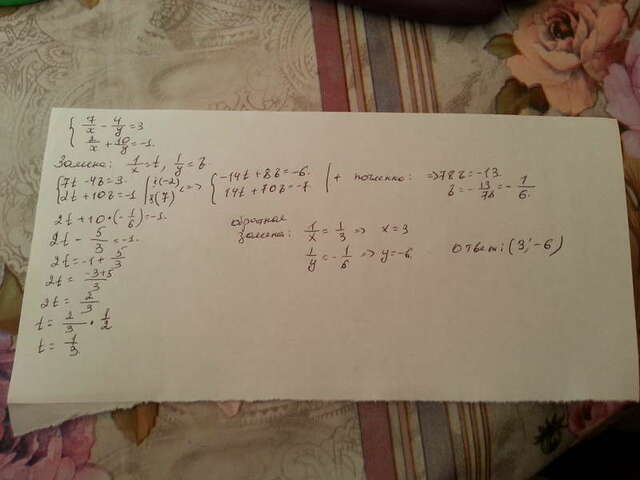 { 7/x - 4/y = 3
2/x + 10/y = -1.
Замена: 1/x = t, 1/y = в.
{ 7t - 4в = 3 | *(-2)
2t + 10в = -1 | *(7) <=> { -14t + 8в = -6.
14t + 70в = -7 | + почленно: => 78в = -13.
в = -13/78 = -1/6.
2t + 10*(-1/6) = -1.
2t - 5/3 = -1.
2t = -1 + 5/3
2t = -3+5/3
2t = 2/3
t = 2/3 * 1/2
t = 1/3.
обратная
замена: 1/x = 1/3 => x = 3
1/y = -1/6 => y = -6.
ответ: (3; -6)